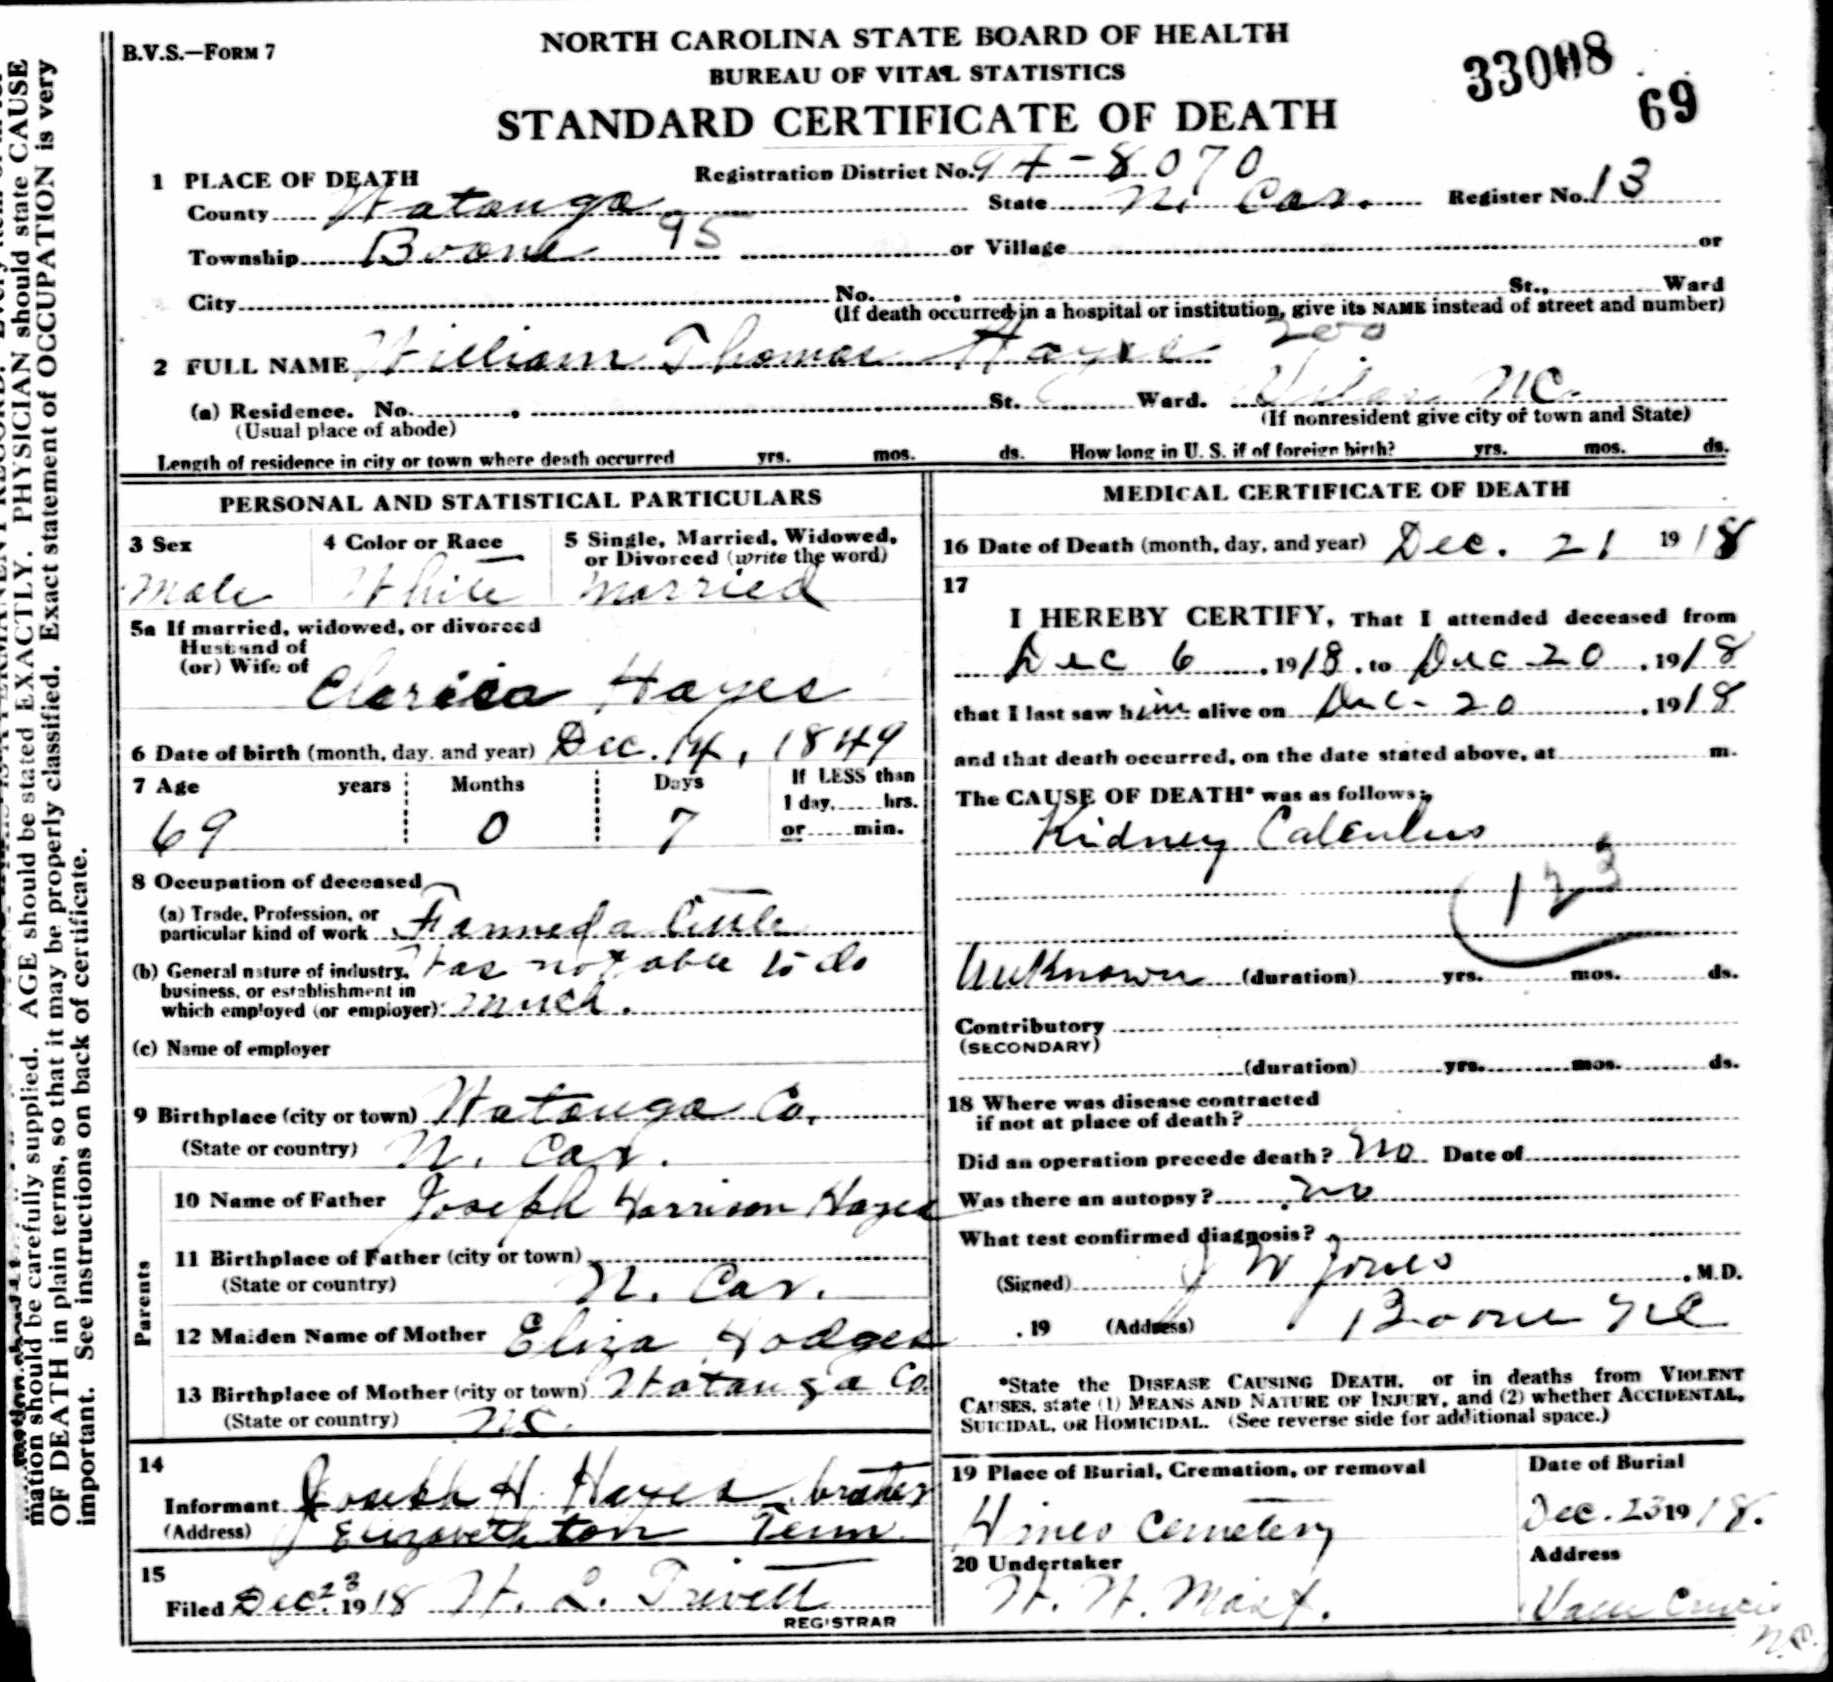 B.V.S.—FORM 7
NORTH CAROLINA STATE BOARD OF HEALTH
BUREAU OF VITAL STATISTICS
STANDARD CERTIFICATE OF DEATH
33008
69
1 PLACE OF DEATH
Registration District No. 97-8070
County Watauga State N. Car. Register No. 13
Township Boone 95 or Village or
City No. St., Ward
(If death occurred in a hospital or institution, give its NAME instead of street and number)
2 FULL NAME William Thomas Hayes 200
(a) Residence. No. St. Ward. N C.
(Usual place of abode) (If nonresident give city or town and State)
Length of residence in city or town where death occurred yrs. mos. ds. How long in U. S. if of foreign birth? yrs. mos. ds.
PERSONAL AND STATISTICAL PARTICULARS
3 Sex 4 Color or Race 5 Single, Married, Widowed,
or Divorced (write the word)
Male White Married
5a If married, widowed, or divorced
Husband of
(or) Wife of
Clarica Hayes
6 Date of birth (month, day, and year) Dec. 14, 1849
7 Age years Months Days If LESS than
1 day, hrs.
69 0 7 or min.
8 Occupation of deceased
(a) Trade, Profession, or
particular kind of work Farmed a little
(b) General nature of industry, Was not able to do
business, or establishment in
which employed (or employer) much.
(c) Name of employer
9 Birthplace (city or town) Watauga Co.
(State or country) N. Car.
Parents
10 Name of Father Joseph Harrison Hayes
11 Birthplace of Father (city or town)
(State or country) N. Car.
12 Maiden Name of Mother Eliza Hodges
13 Birthplace of Mother (city or town) Watauga Co.
(State or country) N.C.
14
Informant Joseph H. Hayes, brother
(Address) Elizabethton Tenn.
15
Filed Dec. 23 1918 W. L. Trivett
REGISTRAR
MEDICAL CERTIFICATE OF DEATH
16 Date of Death (month, day, and year) Dec. 21 1918
17
I HEREBY CERTIFY, That I attended deceased from
Dec 6, 1918, to Dec 20, 1918
that I last saw him alive on Dec. 20, 1918
and that death occurred, on the date stated above, at m.
The CAUSE OF DEATH* was as follows:
Kidney Calculus
123
Unknown (duration) yrs. mos. ds.
Contributory
(SECONDARY)
(duration) yrs. mos. ds.
18 Where was disease contracted
if not at place of death?
Did an operation precede death? No Date of
Was there an autopsy? no
What test confirmed diagnosis?
(Signed) J W Jones, M.D.
, 19 (Address) Boone N C
*State the DISEASE CAUSING DEATH, or in deaths from VIOLENT
CAUSES, state (1) MEANS AND NATURE OF INJURY, and (2) whether ACCIDENTAL,
SUICIDAL, OR HOMICIDAL. (See reverse side for additional space.)
19 Place of Burial, Cremation, or removal Date of Burial
Hines Cemetery Dec. 23 1918.
20 Undertaker Address
W. W. Mast. Valle Crucis
N.C.
mation should be carefully supplied. AGE should be stated EXACTLY. PHYSICIAN should state CAUSE
OF DEATH in plain terms, so that it may be properly classified. Exact statement of OCCUPATION is very
important. See instructions on back of certificate.